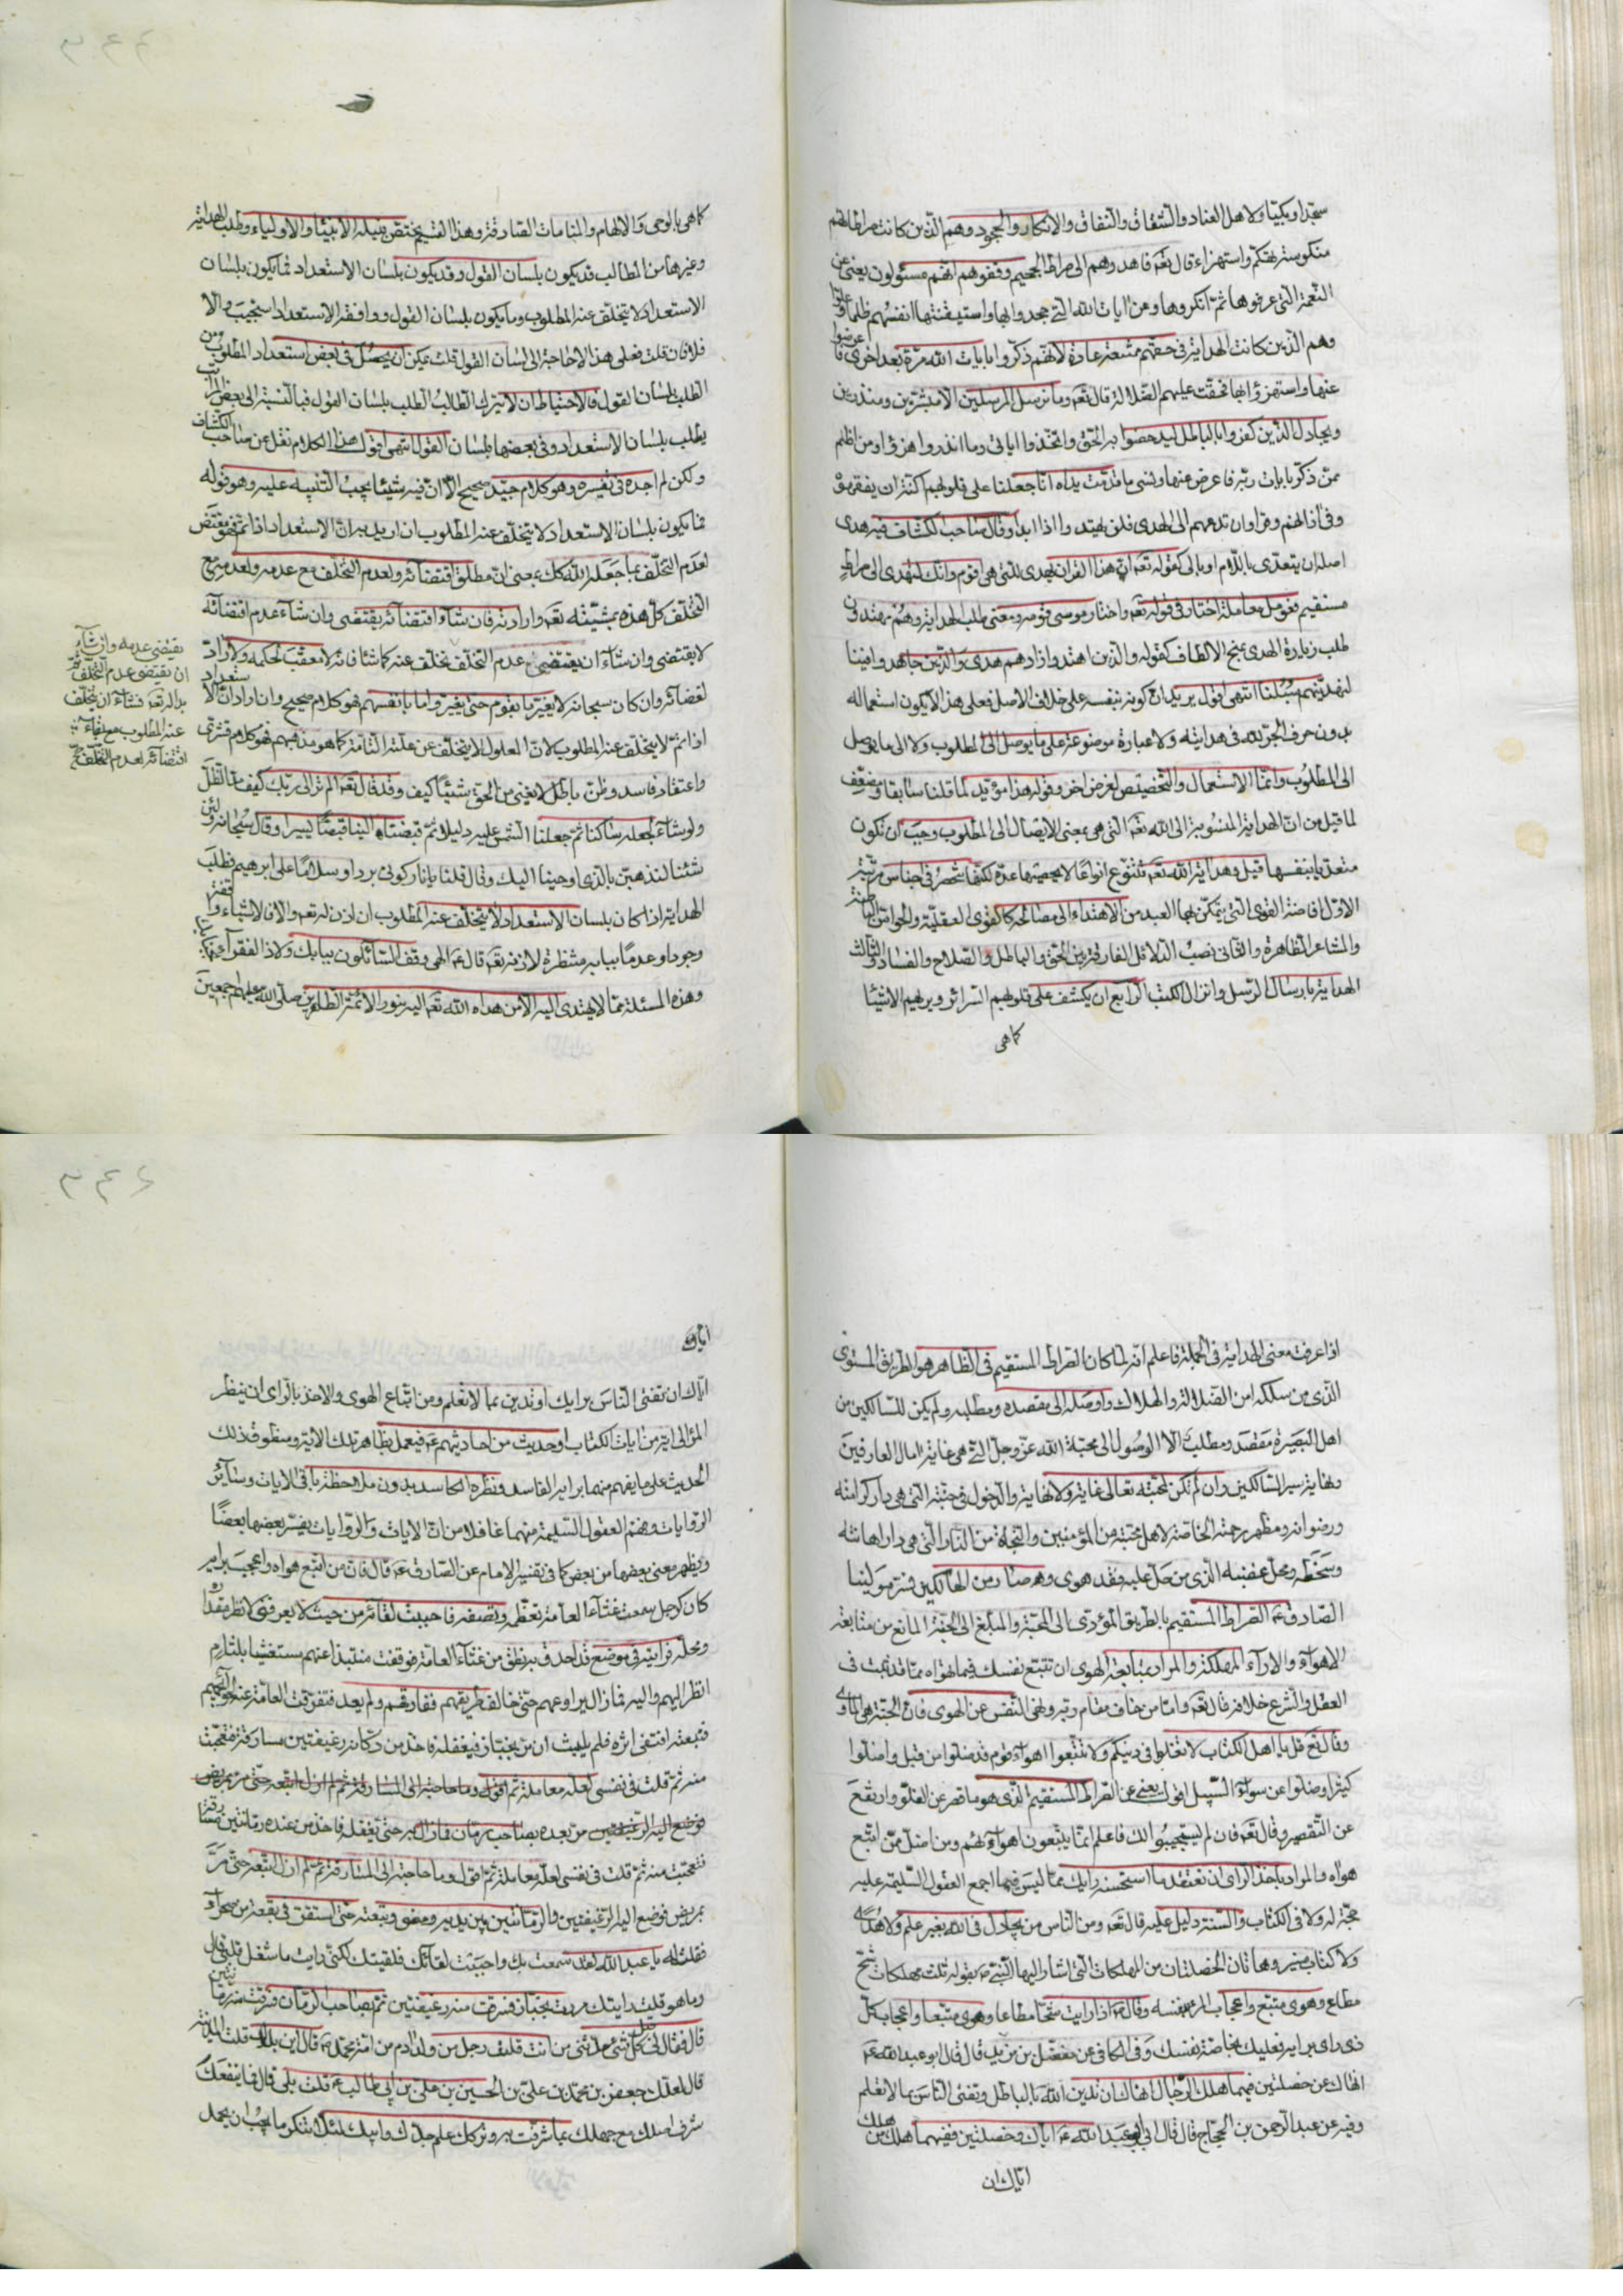 سجدا وبكيا ولاهل العناد والشقاق والنفاق والانكار والجحود وهم الذين كانت مراطالهم
منكوسة بتهكم واستهزاء قال تعه فاهدوهم الى صراط الجحيم وقفوهم انهم مسئولون يعنى عن
النعمة التى عرفوها ثم انكروها ومن ايات الله التى جحدوا بها واستيقنتها انفسهم ظلما وعلوا
وهم الذين كانت الهداية فى حقهم ممتنعة عادة لانهم ذكروا بايات الله مرة بعد اخرى فاعرضوا
عنها واستهزؤا بها فحقت عليهم الضلالة قال تعه وما نرسل المرسلين الا مبشرين ومنذرين
ويجادل الذين كفروا بالباطل ليدحضوا به الحق واتخذوا اياتى وما انذروا هزؤا ومن اظلم
ممن ذكر بايات ربه فاعرض عنها ونسى ما قدمت يداه انا جعلنا على قلوبهم اكنة ان يفقهوه
وفى اذانهم وقرا وان تدعهم الى الهدى فلن يهتدوا اذا ابدا وقال صاحب الكشاف فيه هدى
اصله ان يتعدى باللام او بالى كقوله تعه ان هذا القران يهدى للتى هى اقوم وانك لتهدى الى صراط
مستقيم فعومل معاملة اختار فى قوله تعه واختار موسى قومه ومعنى طلب الهداية وهم مهتدون
طلب زيادة الهدى بمنح الالطاف كقوله والذين اهتدوا زادهم هدى والذين جاهدوا فينا
لنهدينهم سبلنا انتهى اقول يريد ان كونه بنفسه على خلاف الاصل فعلى هذا لا يكون استعماله
بدون حرف الجر لله فى هدايته ولا عبارة موضوعة على ما يوصل الى المطلوب ولا الى ما يوصل
الى المطلوب وانما الاستعمال والتخصيص لغرض اخر وقوله هذا مؤيد لما قلنا سابقا ومضعف
لما قيل من ان الهداية المنسوبة الى الله تعه التى هى بمعنى الايصال الى المطلوب وجب ان تكون
متعدية بنفسها قيل وهداية الله تعه تتنوع انواعا لا يحصيها عد لكنها تنحصر فى اجناس مرتبة
الاول افاضة القوى التى يتمكن بها العبد من الاهتداء الى مصالحه كالقوى العقلية والحواس الباطنة
والمشاعر الظاهرة والثانى نصب الدلائل الفارقة بين الحق والباطل والصلاح والفساد والثالث
الهداية بارسال الرسل وانزال الكتب الرابع ان يكشف على قلوبهم السرائر ويريهم الاشيا
كماهى
كماهى بالوحى والالهام والمنامات الصادقة وهذا القسم يختص بنيله الانبياء والاولياء وطلب الهداية
وغيرها من المطالب قد يكون بلسان القول وقد يكون بلسان الاستعداد فما يكون بلسان
الاستعداد لا يتخلف عنه المطلوب وما يكون بلسان القول ووافقه الاستعداد استجيب والا
فلا فان قلت فعلى هذا لا حاجة الى لسان القول قلت يمكن ان يحصل فى بعض استعداد المطلوب من
الطلب بلسان القول فالاحتياط ان لا يترك الطالب الطلب بلسان القول فبالنسبة الى بعض المراتب
يطلب بلسان الاستعداد وفى بعضها بلسان القول انتهى اقول هذا الكلام نقل عن صاحب الكشاف
ولكن لم اجده فى تفسيره وهو كلام جيد صحيح الا ان فيه شيئا يجب التنبيه عليه وهو قوله
فما يكون بلسان الاستعداد لا يتخلف عنه المطلوب ان اريد به ان الاستعداد اذا تم تحقق مقتض
لعدم التخلف بما جعله الله كك بمعنى ان مطلق اقتضائه ولعدم التخلف مع عدمه ولعدم مع
التخلف كل هذه بمشيته تعه وارادته فان شاء اقتضائه يقتضى وان شاء عدم اقتضائه
لا يقتضى وان شاء ان يقتضى عدم التخلف تخلف عنه كما شا فانه لا معقب لحكمه ولا راد
لقضائه وان كان سبحانه لا يغير ما بقوم حتى يغيروا ما بانفسهم فهو كلام صحيح وان اراد ان الاستعداد
اذا تم لا يتخلف عنه المطلوب لان المعلول لا يتخلف عن علته التامة كما هو مذهبهم فهو كلام قشرى
واعتقاد فاسد وظن باطل لا يغنى من الحق شيئا كيف وقد قال تعه الم تر الى ربك كيف مد الظل
ولو شاء لجعله ساكنا ثم جعلنا الشمس عليه دليلا ثم قبضناه الينا قبضا يسيرا وقال سبحانه ولئن
شئنا لنذهبن بالذى اوحينا اليك وقال قلنا يا نار كونى بردا وسلاما على ابرهيم فطلب
الهداية اذا كان بلسان الاستعداد لا يتخلف عنه المطلوب ان اذن له تعه والا فالاشياء واقفة
وجودا وعدما ببابه منتظرة لاذنه تعه قال ع الهى وقف السائلون ببابك ولاذ الفقراء بجنابك
وهذه المسئلة مما لا يهتدى اليه الا من هداه الله تعه اليه بنور الائمة الطاهرين صلى الله عليهم اجمعين
يقتضى عدمه وان شاء
ان يقتضى عدم التخلف ثم
بدا له تعه فشاء ان يتخلف
عنه المطلوب مع بقاء
اقتضائه لعدم التخلف
اذا عرفت معنى الهداية فى الجملة فاعلم انه لما كان الصراط المستقيم فى الظاهر هو الطريق المستوى
الذى من سلكه امن الضلالة والهلاك واوصله الى مقصده ومطلبه ولم يكن للسالكين من
اهل البصيرة مقصد ومطلب الا الوصول الى محبة الله عز وجل التى هى غاية امال العارفين
ونهاية سير السالكين وان لم تكن لمحبته تعالى غاية ولا نهاية والدخول فى جنته التى هى دار كرامته
ورضوانه ومظهر رحمته الخاصة لاهل محبته من المؤمنين والنجاة من النار التى هى دار اهانته
وسخطه ومحل غضبه الذى من حل عليه فقد هوى وهو صار من الهالكين فسر مولينا
الصادق ع الصراط المستقيم بالطريق المؤدى الى المحبة والمبلغ الى الجنة المانع من متابعة
الاهواء والاراء المهلكة والمراد بمتابعة الهوى ان تتبع نفسك فيما تهواه مما قد ثبت فى
العقل والشرع خلافه قال تعه واما من خاف مقام ربه ونهى النفس عن الهوى فان الجنة هى الماوى
وقال تعه قل يا اهل الكتاب لا تغلوا فى دينكم ولا تتبعوا اهواء قوم قد ضلوا من قبل واضلوا
كثيرا وضلوا عن سواء السبيل اقول يعنى عن الصراط المستقيم الذى هو ما قصر عن الغلو وارتفع
عن التقصير وقال تعه فان لم يستجيبوا لك فاعلم انما يتبعون اهواءهم ومن اضل ممن اتبع
هواه والمراد باخذ الراى ان تعتقد ما استحسنه رايك مما ليس فيما اجمع العقول السليمة عليه
حجة له ولا فى الكتاب والسنة دليل عليه قال تعه ومن الناس من يجادل فى الله بغير علم ولا هدى
ولا كتاب منير وهاتان الخصلتان من المهلكات التى اشار اليها النبى ص بقوله ثلث مهلكات شح
مطاع وهوى متبع واعجاب المرء بنفسه وقال ع اذا رايت شحا مطاعا وهوى متبعا واعجاب كل
ذى راى برايه فعليك بخاصة نفسك وفى الكافى عن مفضل بن مزيد قال قال ابو عبد الله ع
انهاك عن خصلتين فيهما هلك الرجال انهاك ان تدين الله بالباطل وتفتى الناس بما لا تعلم
وفيه عن عبد الرحمن بن الحجاج قال قال لى ابو عبد الله ع اياك وخصلتين ففيهما هلك من هلك
اياك ان
اياك ان تفتى الناس برايك او تدين بما لا تعلم ومن اتباع الهوى والاخذ بالراى ان ينظر
المرء الى اية من ايات الكتاب او حديث من احاديثهم ع فيعمل بظاهر تلك الاية ومنطوق ذلك
الحديث على ما يفهم منهما برايه الفاسد ونظره الكاسد بدون ملاحظة باقى الايات وسائر
الروايات وفهم العقول السليمة منهما غافلا من ان الايات والروايات يفسر بعضها بعضا
ويظهر معنى بعضها من بعض كما فى تفسير الامام عن الصادق ع قال فان من اتبع هواه واعجب برايه
كان كرجل سمعت غثاء العامة تعظمه وتصفه فاحببت لقائه من حيث لا يعرفنى لانظر مقداره
ومحله فرايته فى موضع قد احدق به خلق من غثاء العامة فوقفت منتبذا عنهم مستغشيا بلثام
انظر اليهم واليه فما زال يراوغهم حتى خالف طريقهم ففارقهم ولم يعد فتفرقت العامة عنه لحوائجهم
فتبعته اقتفى اثره فلم يلبث ان مر بخباز فتغفله فاخذ من دكانه رغيفين مسارقة فتعجبت
منه ثم قلت فى نفسى لعله معاملة ثم اقول وما حاجته الى المسارقة ثم لم ازل اتبعه حتى مر بمريض
فوضع اليه الرغيفين من بعده بصاحب رمان فما زال به حتى تغفله فاخذ من عنده رمانتين مسارقة
فتعجبت منه ثم قلت فى نفسى لعله معاملة ثم اقول وما حاجته الى المسارقة ثم لم ازل اتبعه حتى مر
بمريض فوضع اليه الرغيفين والرمانتين بين يديه ومضى وتبعته حتى استقر فى بقعة من صحراء
فقلت له يا عبد الله لقد سمعت بك واحببت لقائك فلقيتك لكنى رايت ما شغل قلبى قال
وما هو قلت رايتك مررت بخباز فسرقت منه رغيفين ثم بصاحب الرمان فسرقت منه رمانتين
قال فقال لى قبل كل شئ حدثنى من انت قلت رجل من ولد ادم من امة محمد ص قال اين بلدك قلت المدينة
قال لعلك جعفر بن محمد بن على بن الحسين بن على بن ابى طالب ع قلت بلى قال فما ينفعك
شرف اصلك مع جهلك بما شرفت به وتركك علم جدك وابيك لئلا تنكر ما يجب ان يحمد